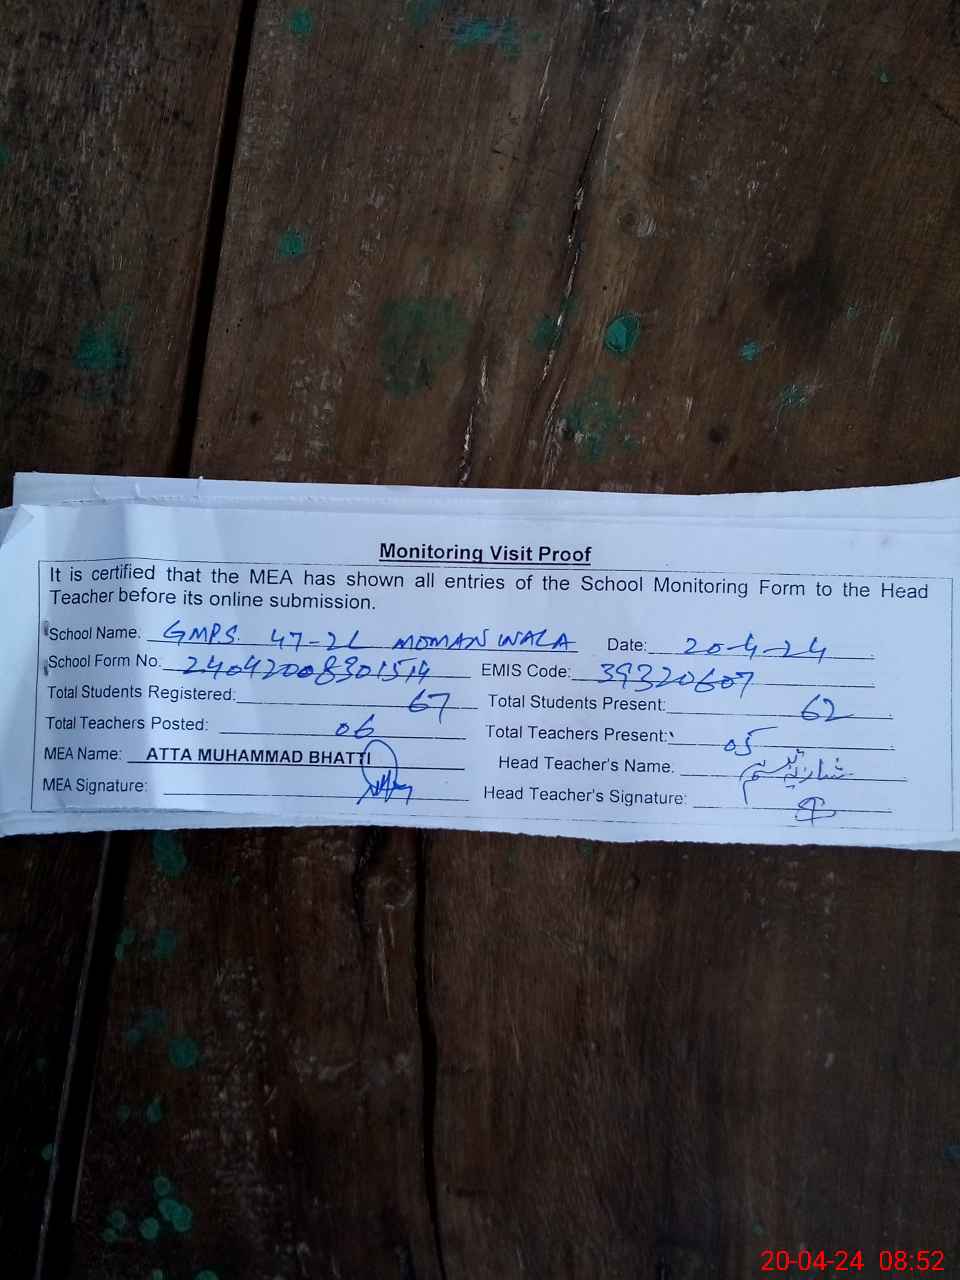 Monitoring Visit Proof
It is certified that the MEA has shown all entries of the School Monitoring Form to the Head
Teacher before its online submission.
School Name: GMPS. 47-2L MOMAN WALA Date: 20-4-24
School Form No: 240420008301514 EMIS Code: 39320607
Total Students Registered: 67 Total Students Present: 62
Total Teachers Posted: 06 Total Teachers Present: 05
MEA Name: ATTA MUHAMMAD BHATTI Head Teacher's Name:
MEA Signature: Head Teacher's Signature:
20-04-24 08:52